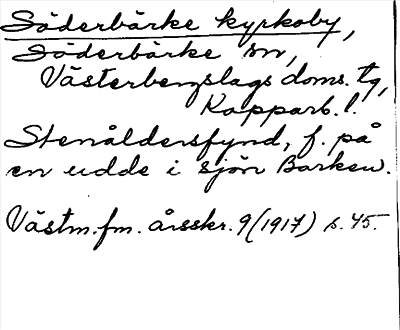 Söderbärke kyrkoby,
Söderbärke sn,
Västerbergslags doms. tg,
Kopparb. l.
Stenåldersfynd, f. på
en udde i sjön Barken.
Västm. fm. årsskr. 9 (1917) s. 45.